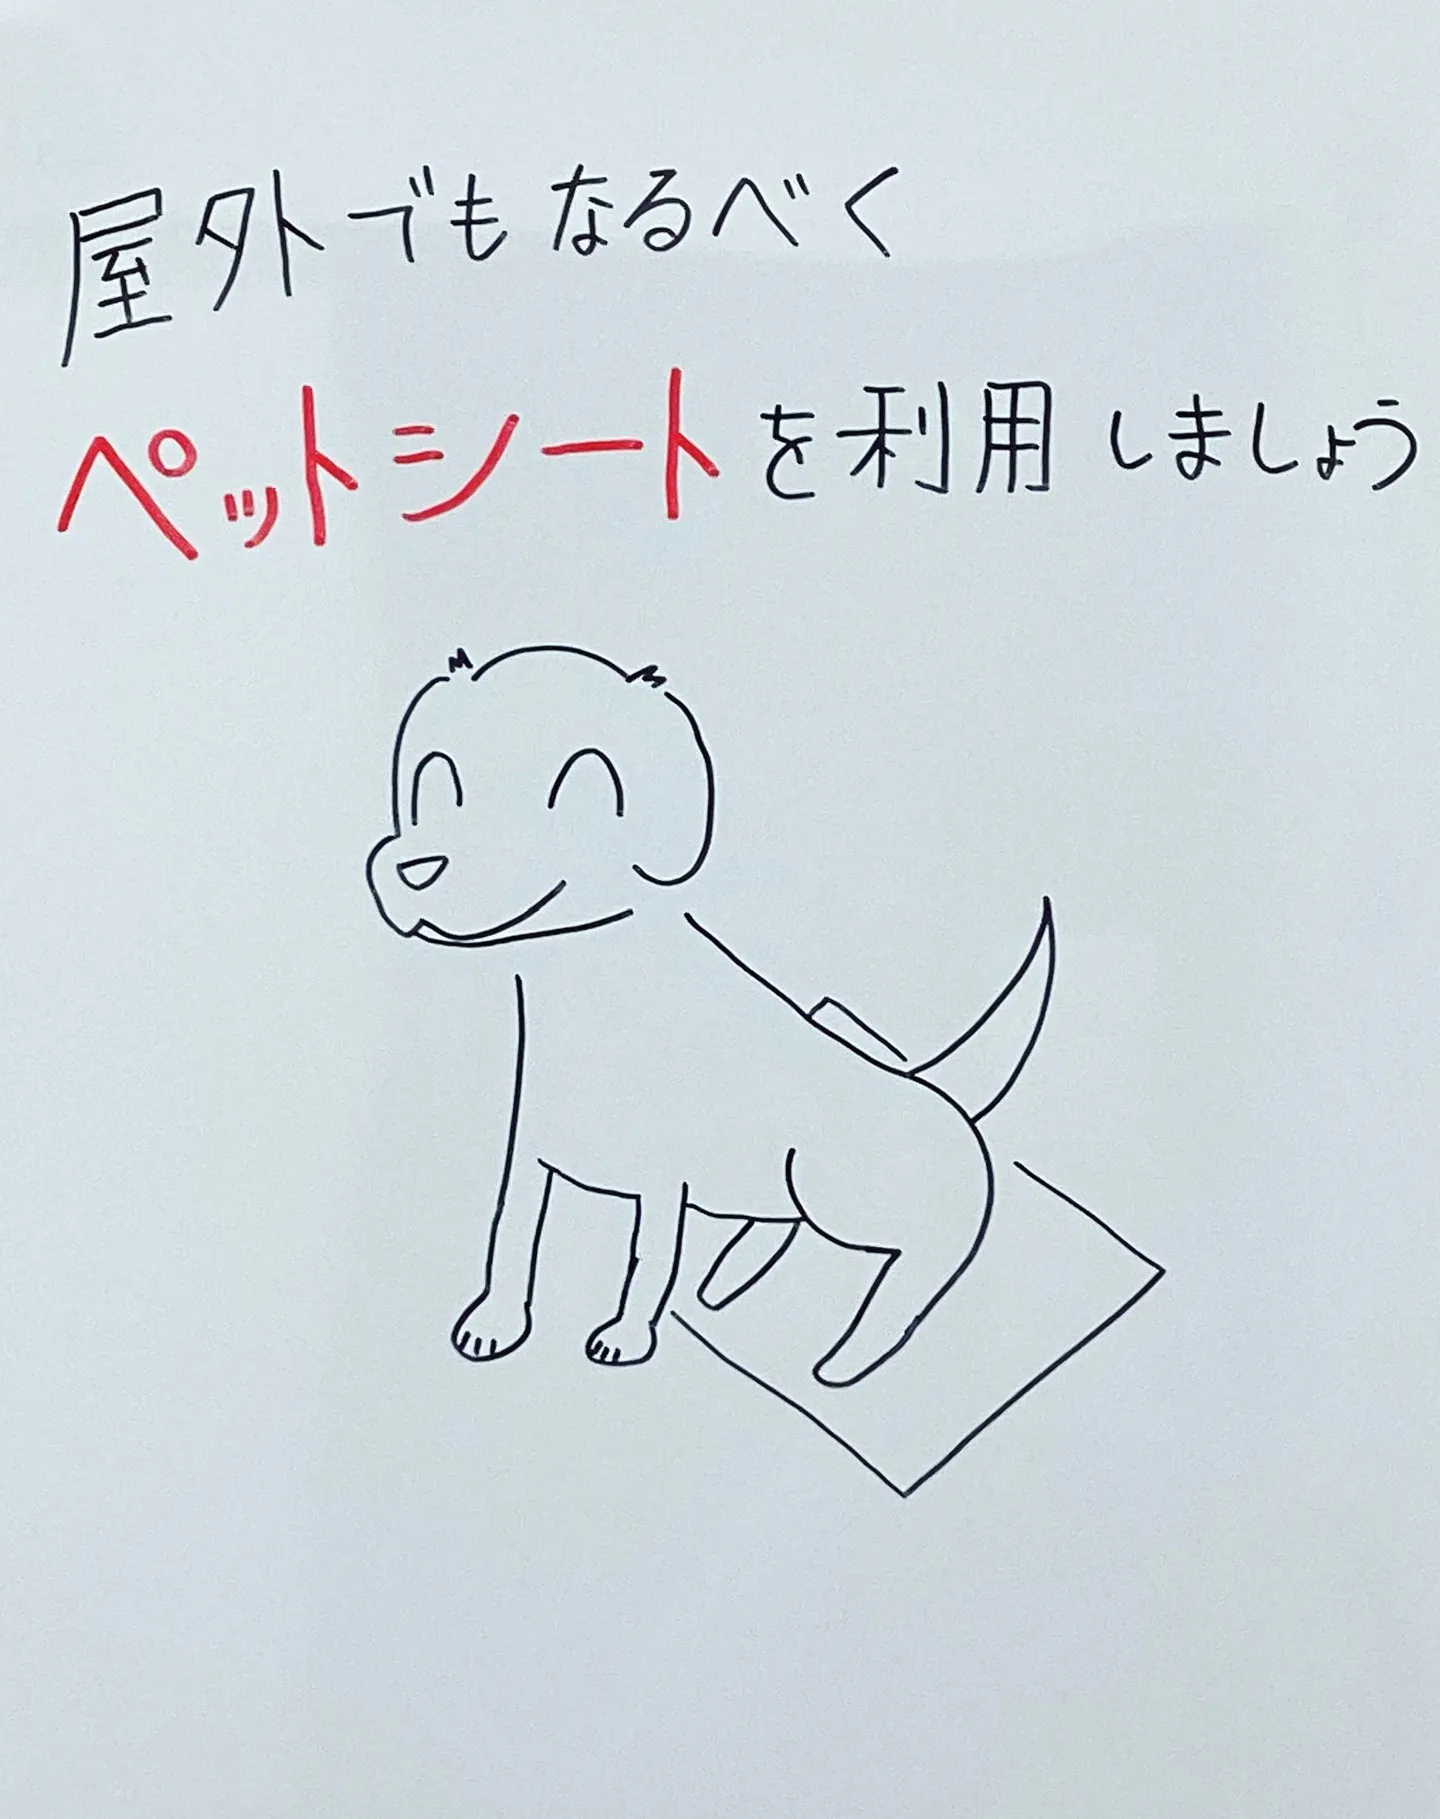 屋外でもなるべく
ペットシートを利用しましょう